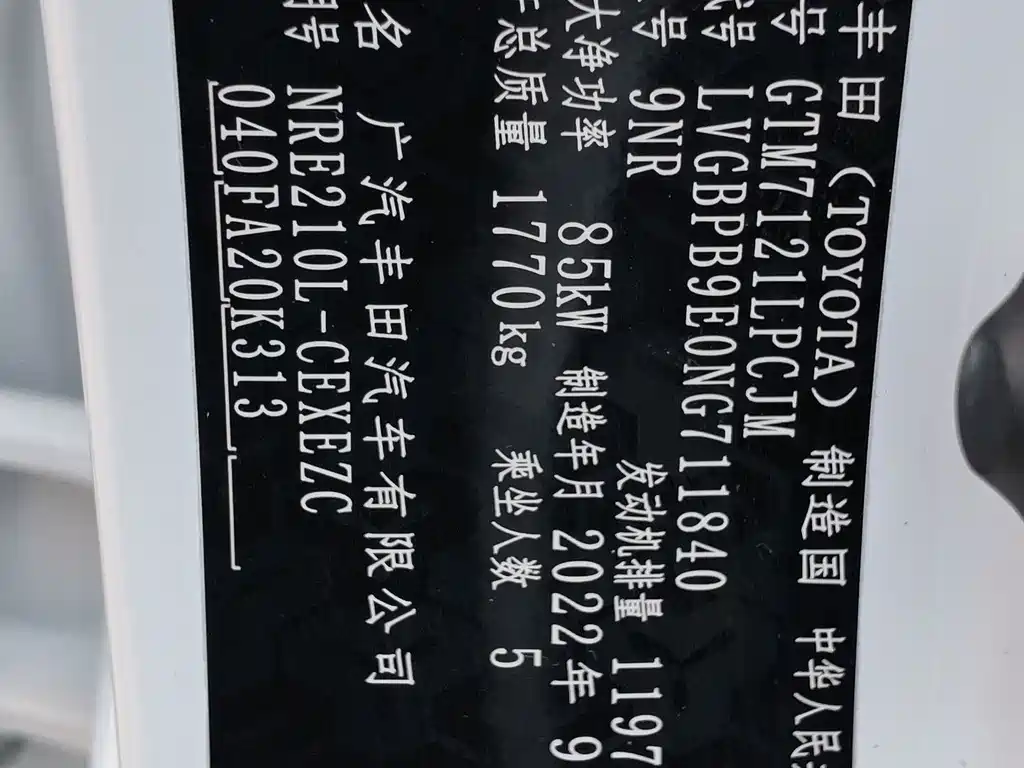 丰田 (TOYOTA) 制造国 中华人民
号 GTM7121LPCJM
号 LVGBPB9E0NG711840
号 9NR 发动机排量 1197
大净功率 85kW 制造年月 2022年9
总质量 1770kg 乘坐人数 5
名 广汽丰田汽车有限公司
号 NRE210L-CEXEZC
040FA20K313